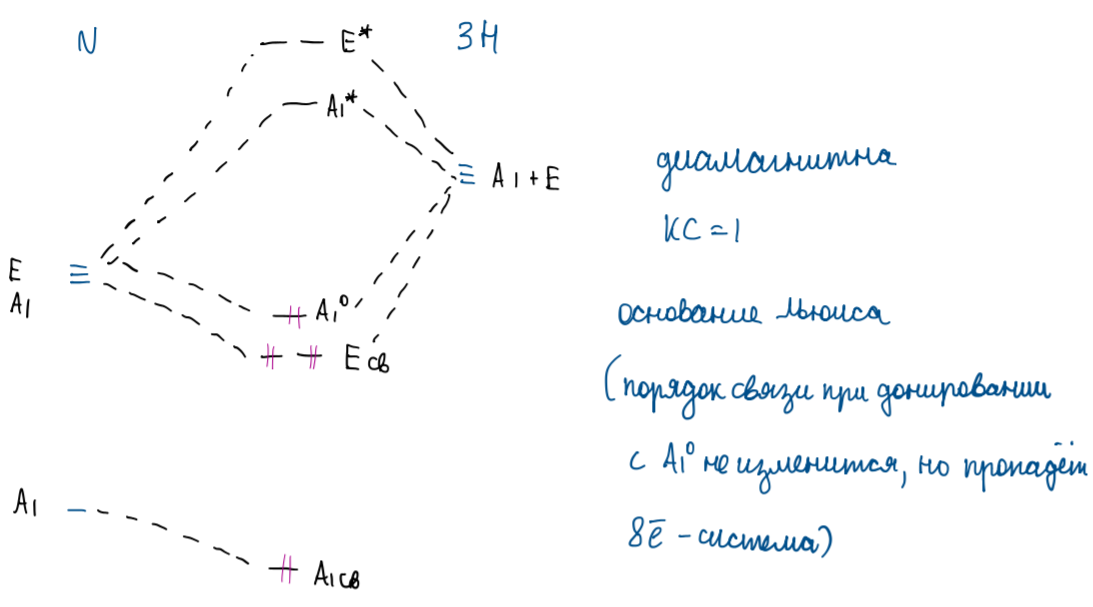 N
3H
E*
A1*
A1+E
E
A1
A1⁰
E св
A1
A1 св
диамагнитна
КС = 1
основание Льюиса
(порядок связи при донировании
с A1⁰ не изменится, но пропадёт
8ē - система)